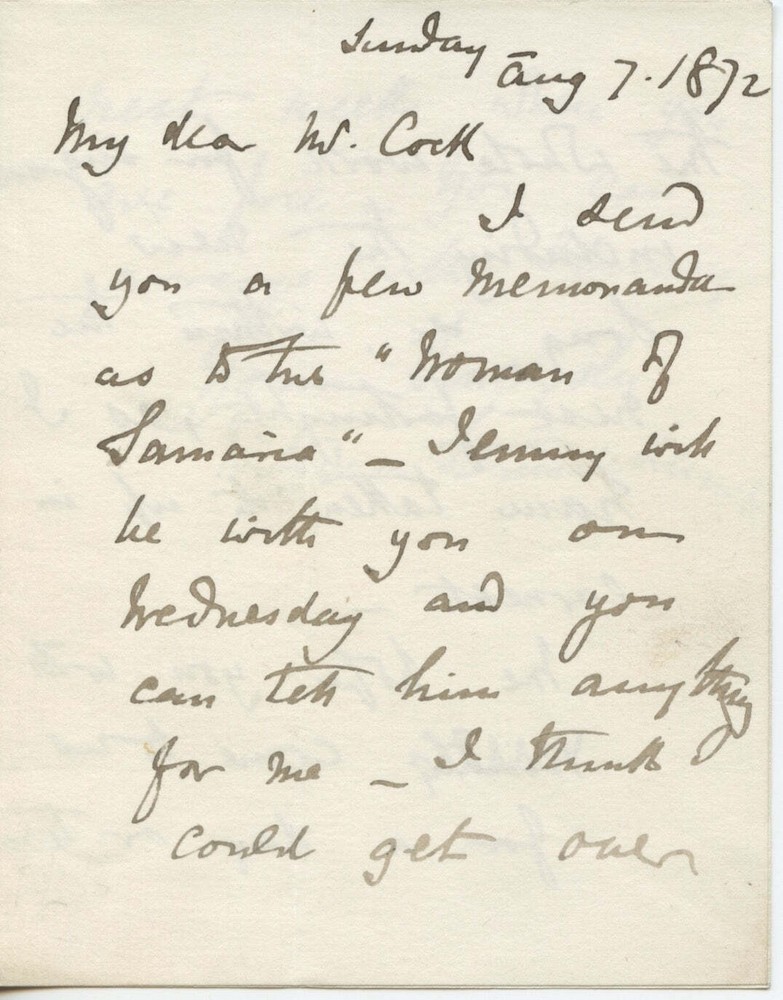 Sunday
Aug 7. 1872
My dear Mr. Cock
I send
you a few memoranda
as to the "Woman of
Samaria" – Jemmy will
be with you on
Wednesday and you
can tell him anything
for me – I think
could get over